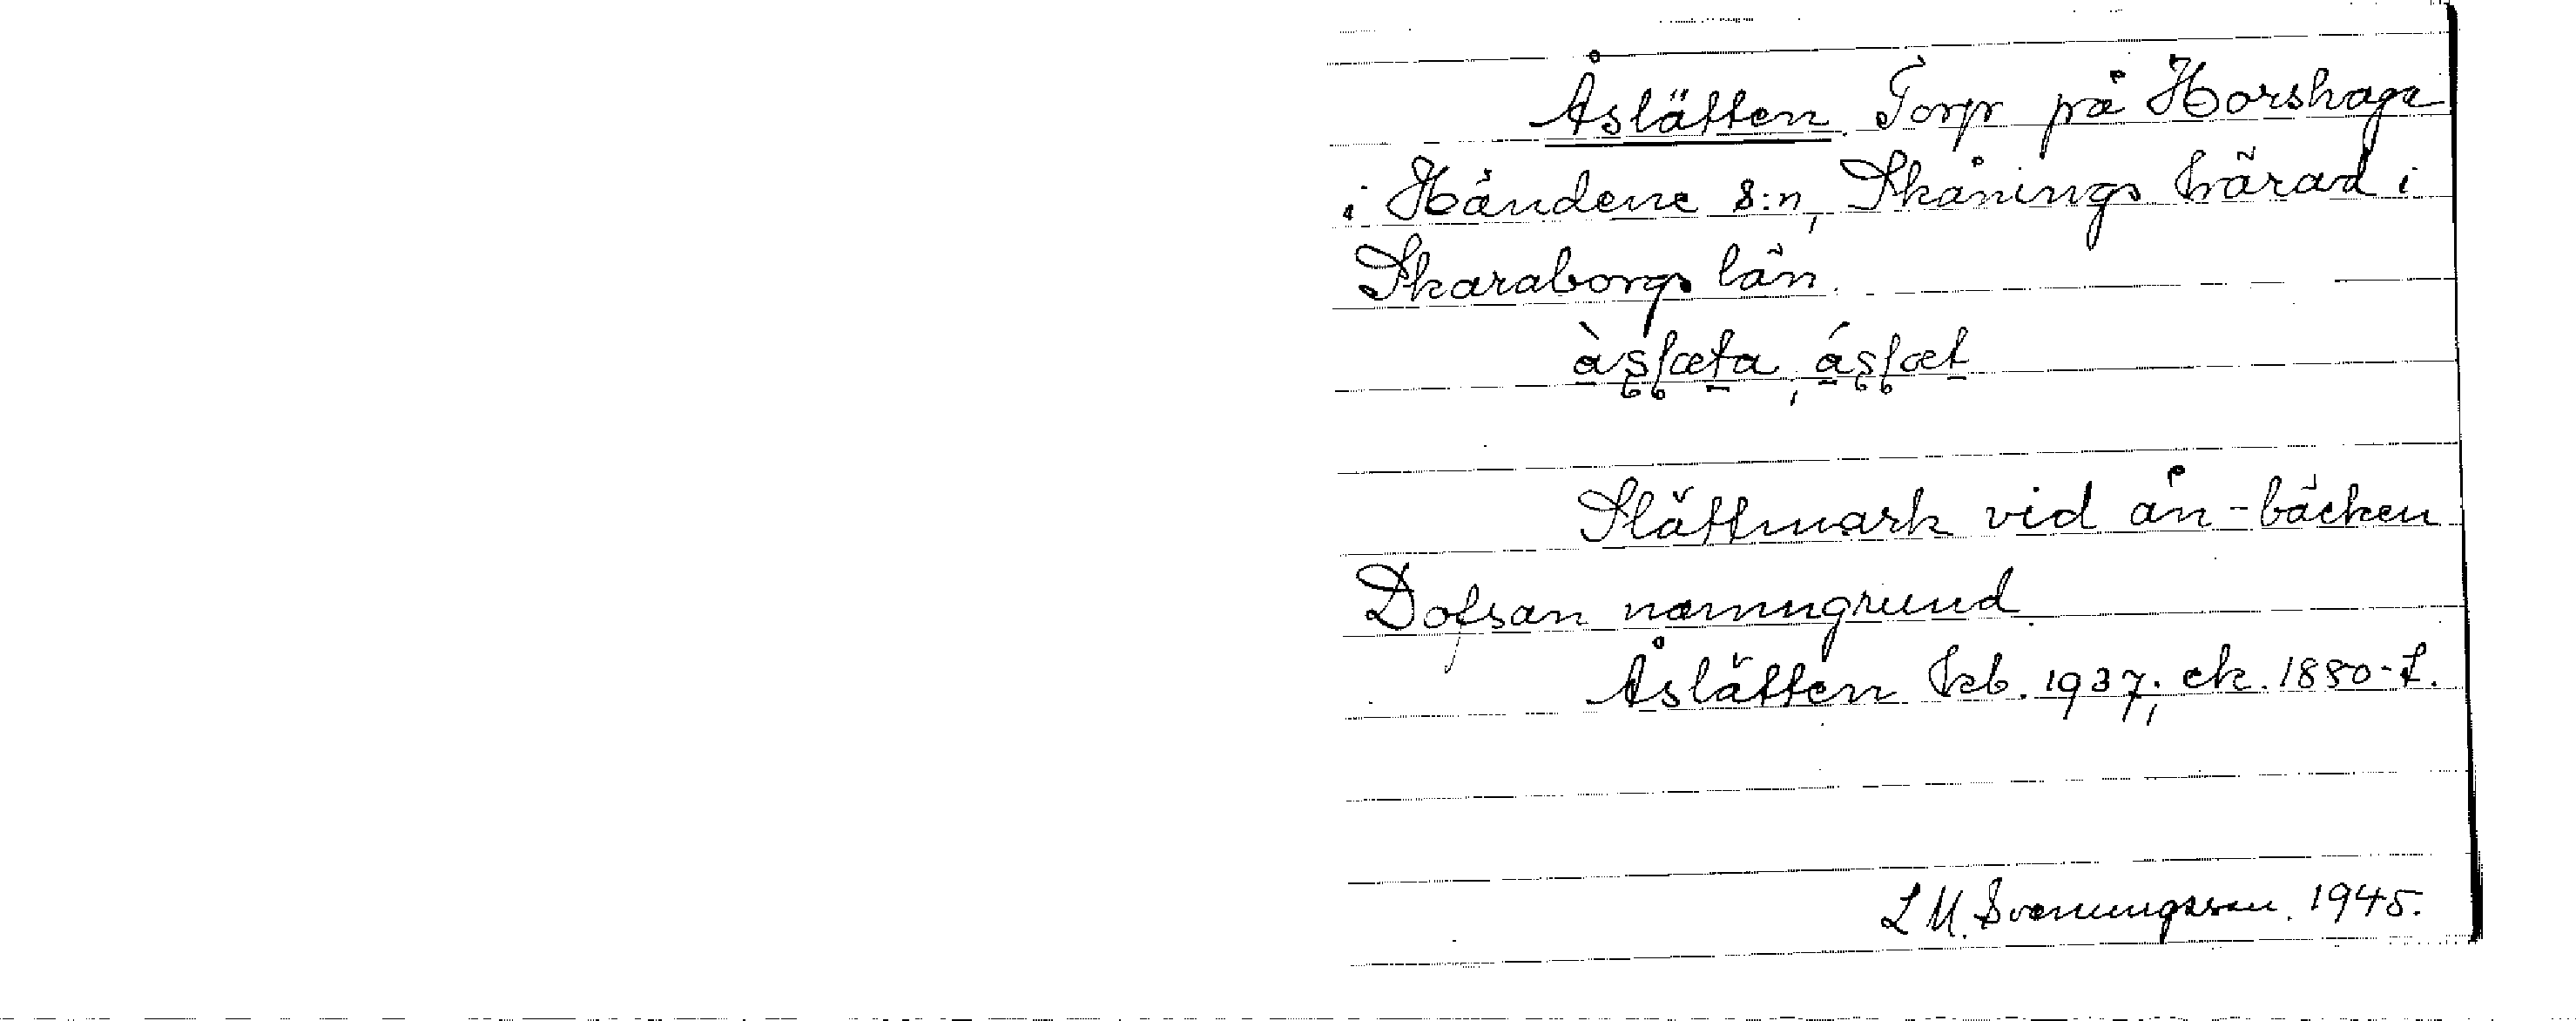 Åslätten. Torp på Horshaga
i Händene s:n, Skånings härad i
Skaraborgs län.
àslæta, áslæt
Slättmark vid ån - bäcken
Dofsan namngrund.
Åslätten kb. 1937; ek. 1880-t.
L M. Svenungsson. 1945.